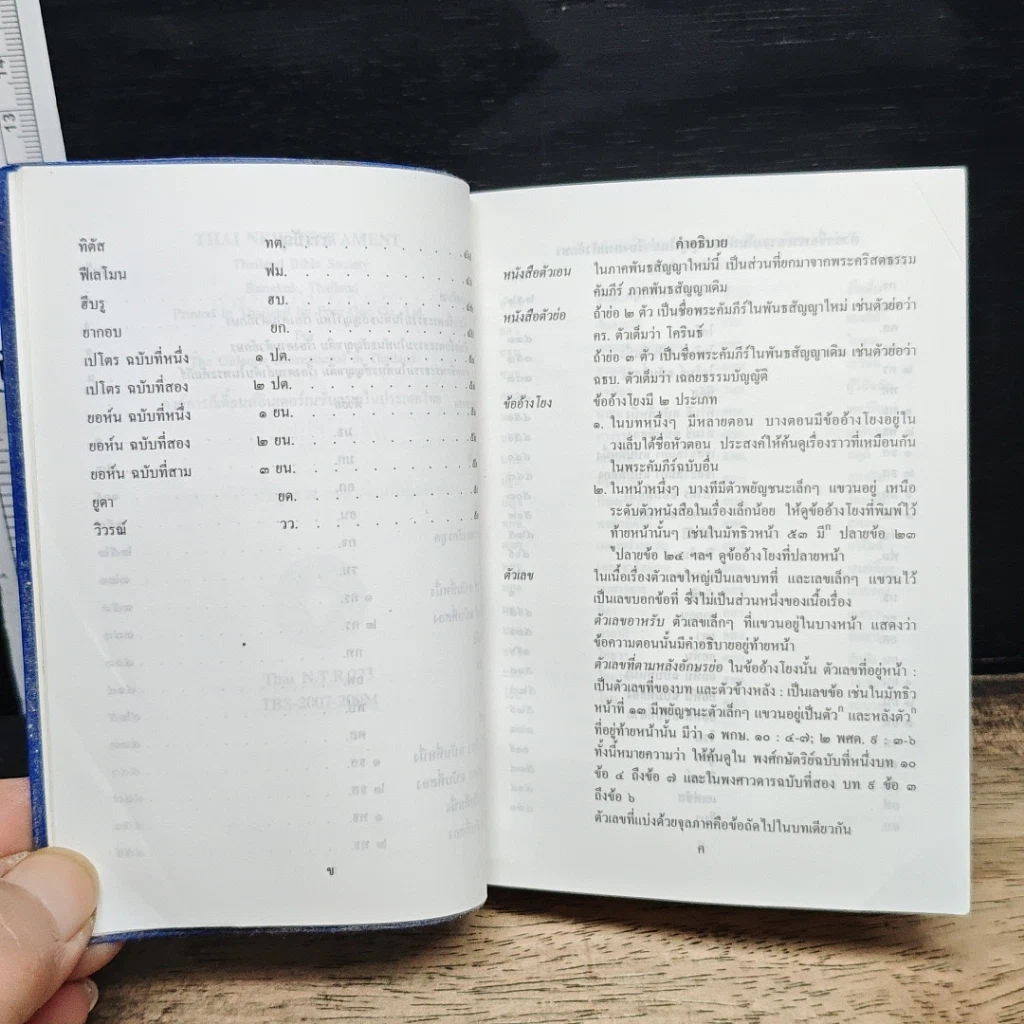 ทิตัส ทต.
ฟีเลโมน ฟม.
ฮีบรู ฮบ.
ยากอบ ยก.
เปโตร ฉบับที่หนึ่ง ๑ ปต.
เปโตร ฉบับที่สอง ๒ ปต.
ยอห์น ฉบับที่หนึ่ง ๑ ยน.
ยอห์น ฉบับที่สอง ๒ ยน.
ยอห์น ฉบับที่สาม ๓ ยน.
ยูดา ยด.
วิวรณ์ วว.
ข
คำอธิบาย
หนังสือตัวเอน ในภาคพันธสัญญาใหม่นี้ เป็นส่วนที่ยกมาจากพระคริสตธรรม
คัมภีร์ ภาคพันธสัญญาเดิม
หนังสือตัวย่อ ถ้าย่อ ๒ ตัว เป็นชื่อพระคัมภีร์ในพันธสัญญาใหม่ เช่นตัวย่อว่า
คร. ตัวเต็มว่า โครินธ์
ถ้าย่อ ๓ ตัว เป็นชื่อพระคัมภีร์ในพันธสัญญาเดิม เช่นตัวย่อว่า
ฉธบ. ตัวเต็มว่า เฉลยธรรมบัญญัติ
ข้ออ้างโยง ข้ออ้างโยงมี ๒ ประเภท
๑. ในบทหนึ่งๆ มีหลายตอน บางตอนมีข้ออ้างโยงอยู่ใน
วงเล็บใต้ชื่อหัวตอน ประสงค์ให้ค้นดูเรื่องราวที่เหมือนกัน
ในพระคัมภีร์ฉบับอื่น
๒. ในหน้าหนึ่งๆ บางทีมีตัวพยัญชนะเล็กๆ แขวนอยู่ เหนือ
ระดับตัวหนังสือในเรื่องเล็กน้อย ให้ดูข้ออ้างโยงที่พิมพ์ไว้
ท้ายหน้านั้นๆ เช่นในมัทธิวหน้า ๕๓ มี ปลายข้อ ๒๓
ปลายข้อ ๒๔ ฯลฯ ดูข้ออ้างโยงที่ปลายหน้า
ตัวเลข ในเนื้อเรื่องตัวเลขใหญ่เป็นเลขบทที่ และเลขเล็กๆ แขวนไว้
เป็นเลขบอกข้อที่ ซึ่งไม่เป็นส่วนหนึ่งของเนื้อเรื่อง
ตัวเลขอาหรับ ตัวเลขเล็กๆ ที่แขวนอยู่ในบางหน้า แสดงว่า
ข้อความตอนนั้นมีคำอธิบายอยู่ท้ายหน้า
ตัวเลขที่ตามหลังอักษรย่อ ในข้ออ้างโยงนั้น ตัวเลขที่อยู่หน้า :
เป็นตัวเลขที่ของบท และตัวข้างหลัง : เป็นเลขข้อ เช่นในมัทธิว
หน้าที่ ๑๓ มีพยัญชนะตัวเล็กๆ แขวนอยู่เป็นตัวก และหลังตัวก
ที่อยู่ท้ายหน้านั้น มีว่า ๑ พกษ. ๑๐ : ๔-๗; ๒ พศด. ๙ : ๓-๖
ทั้งนี้หมายความว่า ให้ค้นดูใน พงศ์กษัตริย์ฉบับที่หนึ่งบท ๑๐
ข้อ ๔ ถึงข้อ ๗ และในพงศาวดารฉบับที่สอง บท ๙ ข้อ ๓
ถึงข้อ ๖
ตัวเลขที่แบ่งด้วยจุลภาคคือข้อถัดไปในบทเดียวกัน
ค